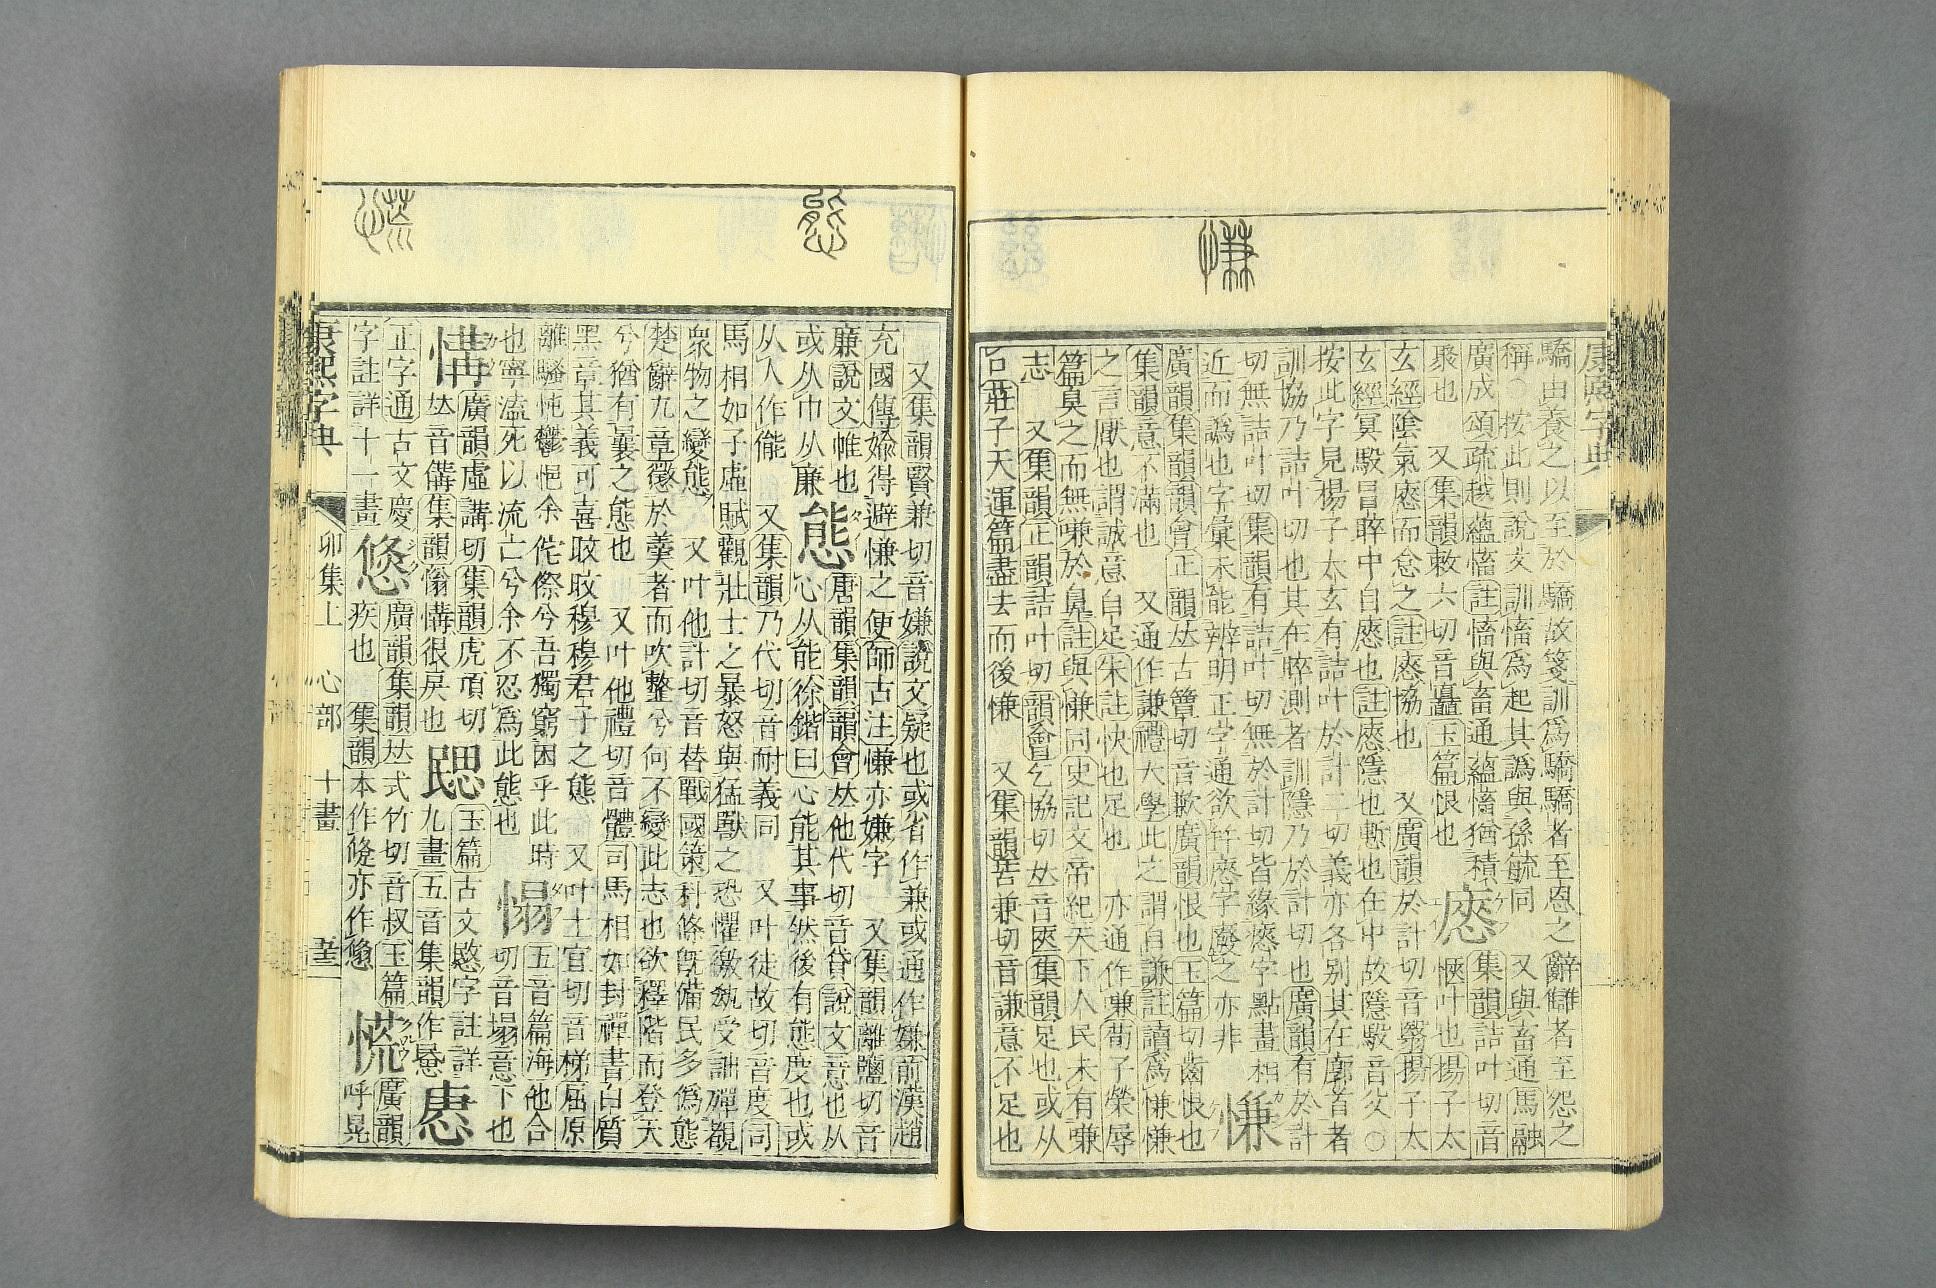 慊
康熙字典
驕由養之以至於驕故箋訓爲驕驕者至恩之辭讎者至怨之
稱○按此則說文訓慉爲起其譌與孫毓同 又與畜通馬融
廣成頌疏越蘊慉註慉與畜通蘊慉猶積
聚也 又集韻敕六切音矗玉篇恨也 瘱 集韻詰叶切音
愜叶也揚子太
玄經陰氣瘱而念之註瘱協也 又廣韻於計切音翳揚子太
玄經冥駇冒睟中自瘱也註瘱隱也慙也在中故隱駇音父○
按此字見揚子太玄有詰叶於計二切義亦各別其在廓首者
訓協乃詰叶切也其在睟測者訓隱乃於計切也廣韻有於計
切無詰叶切集韻有詰叶切無於計切皆緣瘱字點畫相
近而譌也字彙未能辨明正字通欲幷瘱字廢之亦非 慊
廣韻集韻韻會正韻𠀤古簟切音歉廣韻恨也玉篇切齒恨也
集韻意不滿也 又通作謙禮大學此之謂自謙註讀爲慊慊
之言厭也謂誠意自足朱註快也足也 亦通作嗛荀子榮辱
篇臭之而無嗛於鼻註與慊同史記文帝紀天下人民未有嗛
志 又集韻正韻詰叶切韻會乞協切𠀤音匧集韻足也或从
口莊子天運篇盡去而後慊 又集韻苦兼切音謙意不足也
態
慌
又集韻賢兼切音嫌說文疑也或省作兼或通作嫌前漢趙
充國傳媮得避慊之便師古注慊亦嫌字 又集韻離鹽切音
廉說文帷也
或从巾从廉 態 唐韻集韻韻會𠀤他代切音貸說文意也从
心从能徐鍇曰心能其事然後有態度也或
从人作儱 又集韻乃代切音耐義同 又叶徒故切音度司
馬相如子虛賦觀壯士之暴怒與猛獸之恐懼徼䣛受詘殫觀
衆物之變態 又叶他計切音替戰國策科條旣備民多僞態
楚辭九章懲於羹者而吹整兮何不變此志也欲釋階而登天
兮猶有曩之態也 又叶他禮切音體司馬相如封禪書白質
黑章其義可喜旼旼穆穆君子之態 又叶土宜切音梯屈原
離騷忳鬱悒余侘傺兮吾獨窮困乎此時
也寧溘死以流亡兮余不忍爲此態也 㦅 五音篇海他合
切音塌意下也
慲 廣韻虛講切集韻虎項切
𠀤音傋集韻慃慲很戾也 玉篇古文愍字註詳
九畫 五音集韻作
正字通古文慶
字註詳十一畫 悠 廣韻集韻𠀤式竹切音叔玉篇
疾也 集韻本作 亦作 慌 廣韻
呼晃
康熙字典 卯集上 心部 十畫